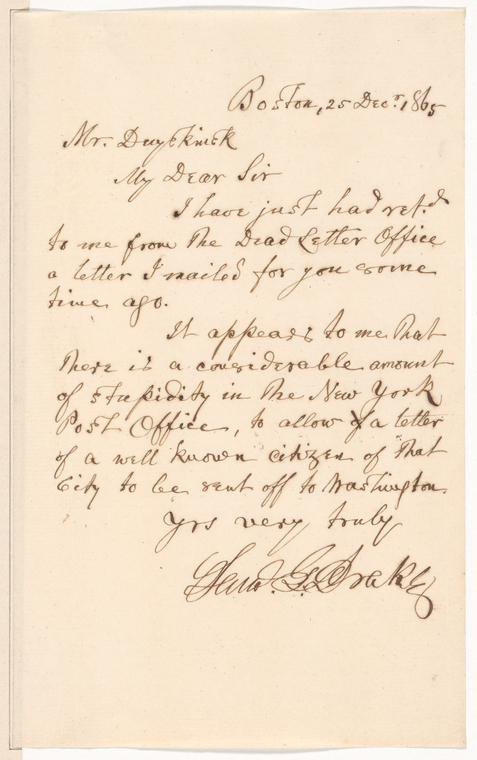 Boston, 25 Decr. 1865
Mr. Duyckinck
My Dear Sir
I have just had retd.
to me from the Dead Letter Office
a letter I mailed for you some
time ago.
It appears to me that
there is a considerable amount
of stupidity in the New York
Post Office, to allow a letter
of a well known citizen of that
City to be sent off to Washington
Yrs very truly
Saml. G. Drake